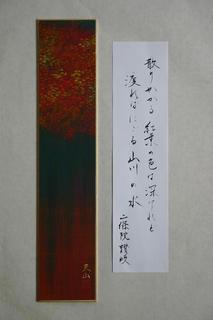 散りかかる紅葉の色は深けれど
渡ればにごる山川の水
二條院讃岐